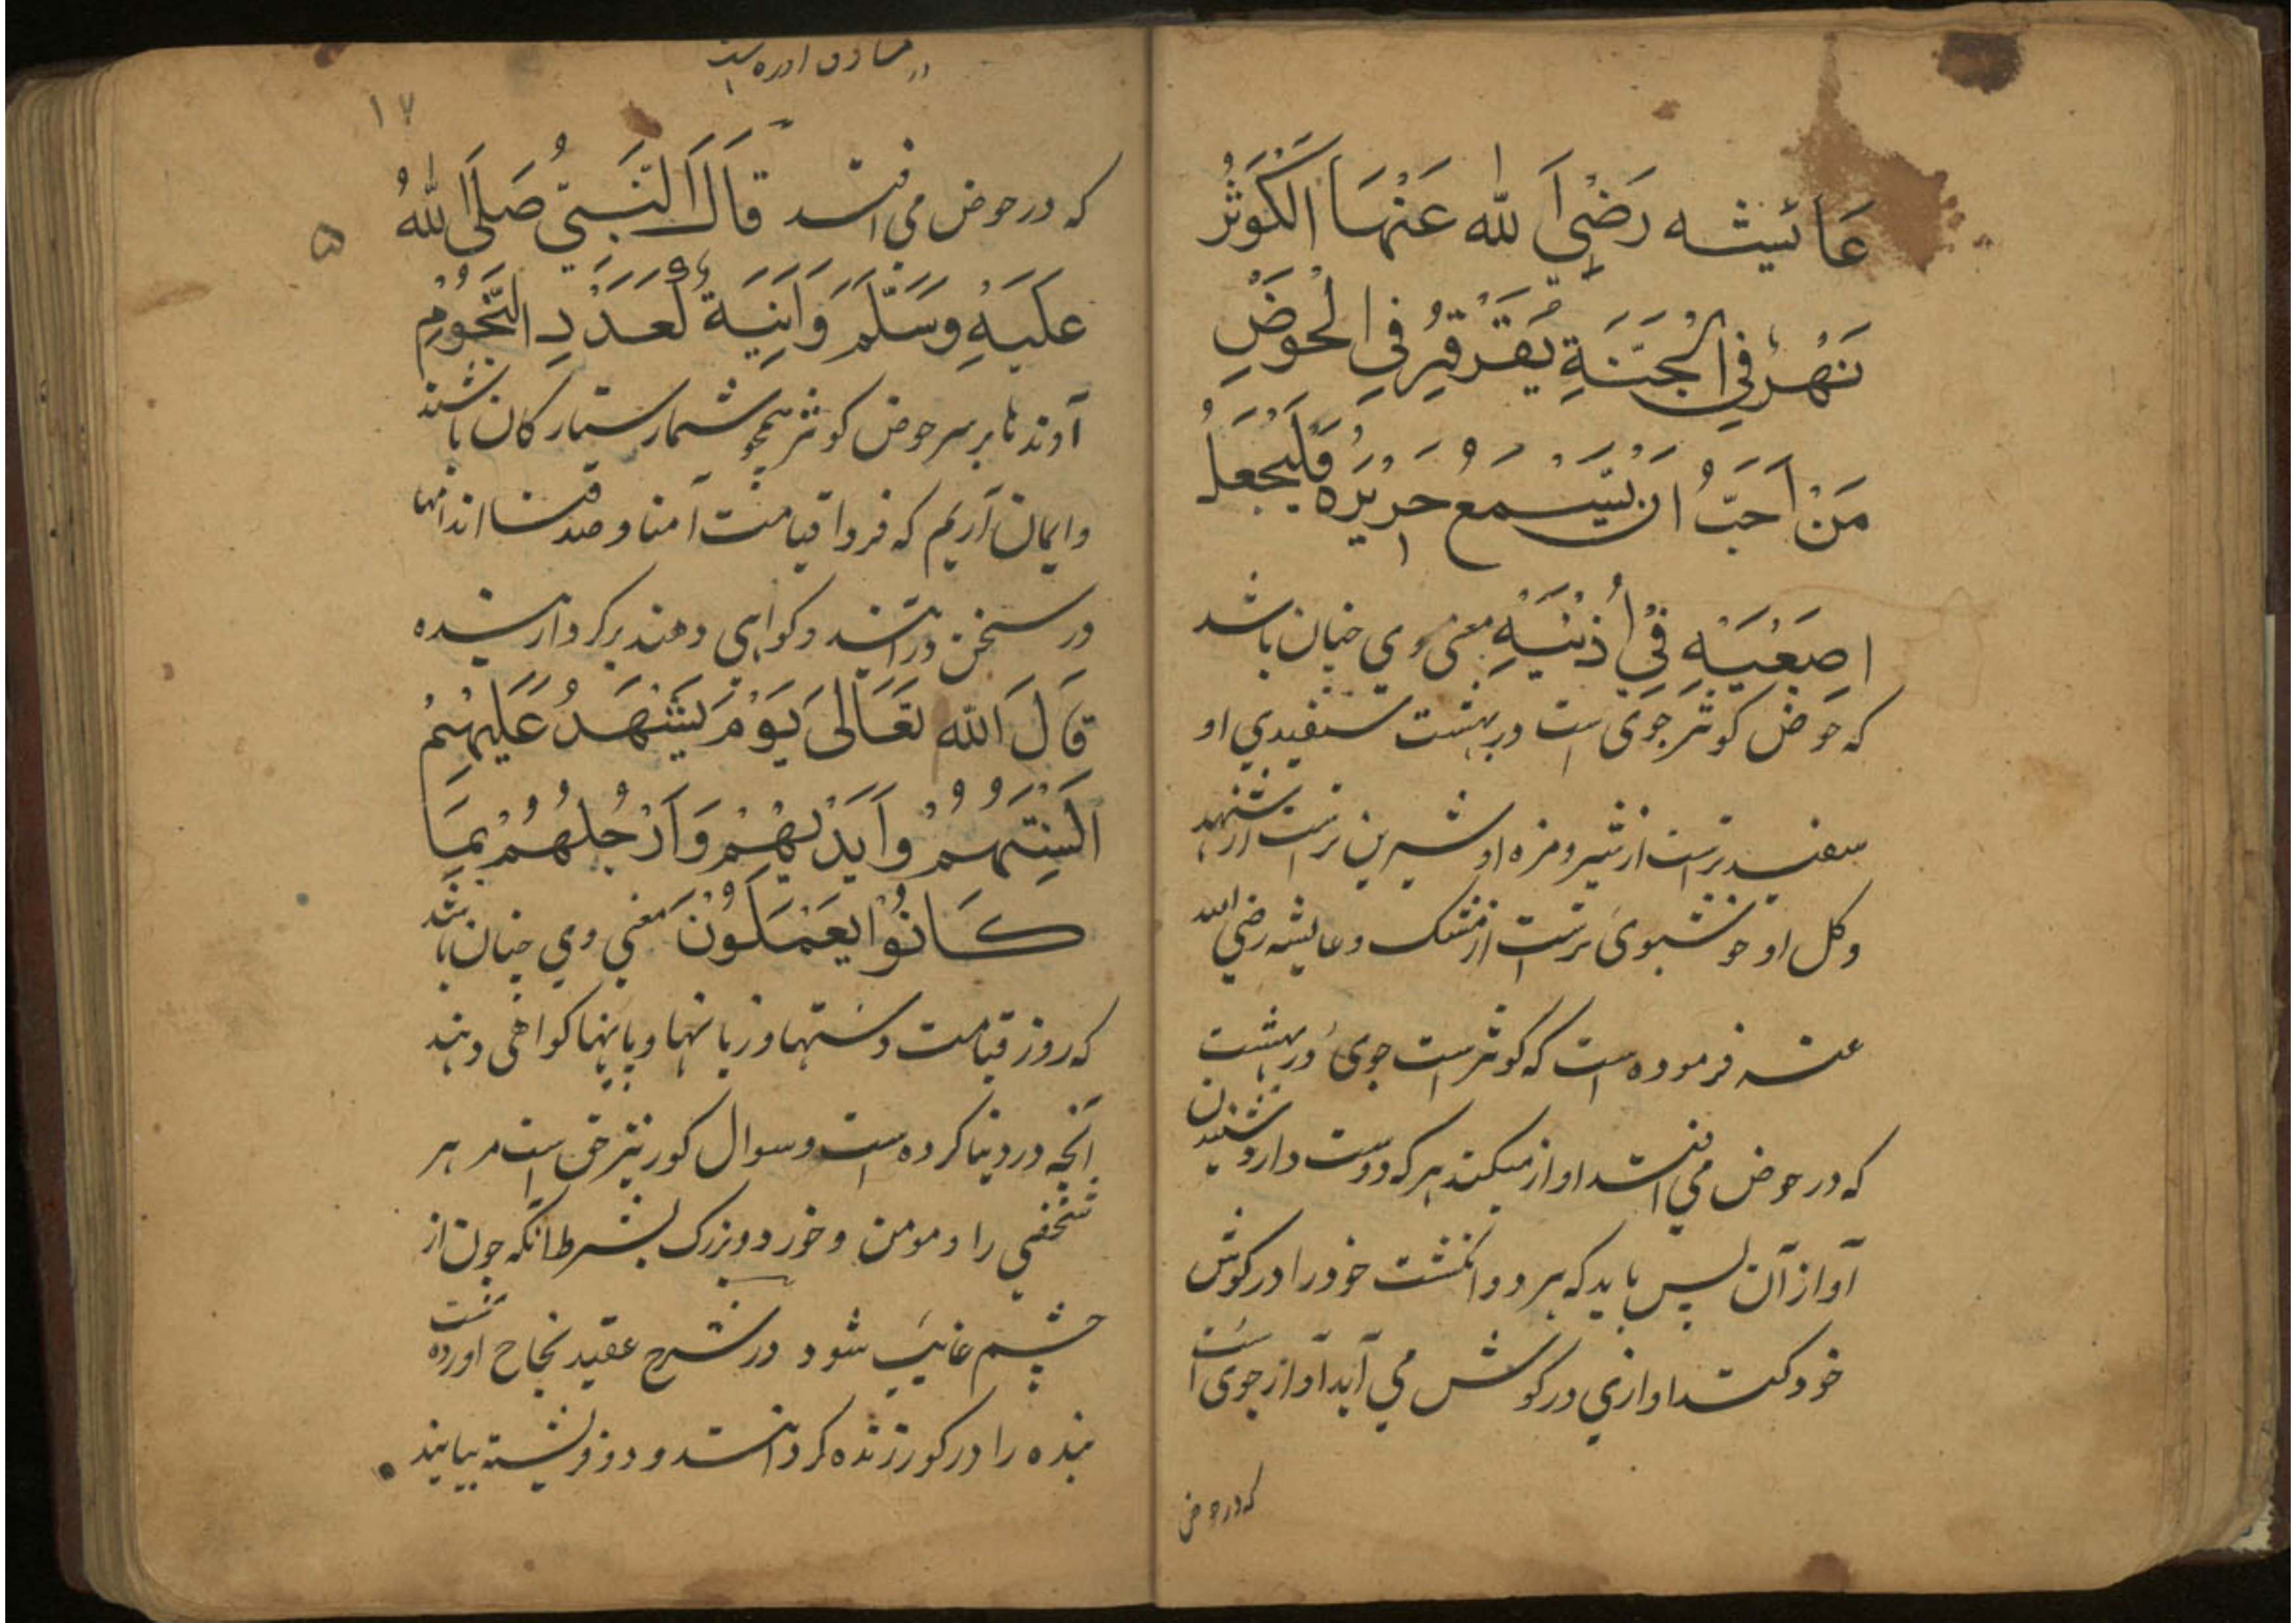 عَائيشه رَضِيَ الله عَنْهَا الكَوثَرُ
نَهْرٌ فِي الْجَنَّةِ يَقَرْقِرُ فِي الْحَوضِ
مَنْ اَحَبَّ ان يَّسمعُ حرِيْرَه فَلْيَجْعَلُ
اِصبَعَيْهِ فِيْ اُذنَيْهِ معنی وي چنان باشد
که حوض کوثر جوی است در بهشت سفیدي او
سفید ترست از شیر و مزه او شیرین ترست از شهد
و کل او خوشبوی ترست از مشک و عایشه رضی الله
عنه فرموده است که کوثر است جوی در بهشت
که در حوض مي افتد اواز میکند هر که دوست دارد شنیدن
آواز آن پس باید که هر دو انکشت خود را در کوش
خود کند اوازي در کوش مي آید آواز جوی است
که در حوض
۱۷
که در حوض مي افتد قَالَ النَّبِيُّ صَلَى اللهُ
۵
عَلَيْهِ وَسَلَّمَ وَاٰنِيَةٌ لَعَدَدِ النُّجُوْمِ
آوندها بر سر حوض کوثر همچو شمار ستارکان باشند
و ایمان آریم که فردا قیامت آمنا و صدقنا اندامها
در سخن درایند و کواهی دهند بر کردار شده
قَالَ الله تَعَالىَ يَوْمَ يَشْهَدُ عَلَيْهِمْ
اَلْسِنَتُهُمْ وَاَيْدِيْهِمْ وَاَرْجُلُهُمْ بِمَا
كَانُوْا يَعْمَلُوْنَ معني وي چنان باشد
که روز قیامت دستها و زبانها و پایها کواهی دهند
انچه در دنیا کرده است و سوال کور نیز حق است مر هر
شخصي را و مومن و خورد و بزرک بشرط آنکه چون از
چشم غایب شود در شرح عقیده نجاح اورده است
بنده را در کور زنده کردانند و دو فرشته بیایند